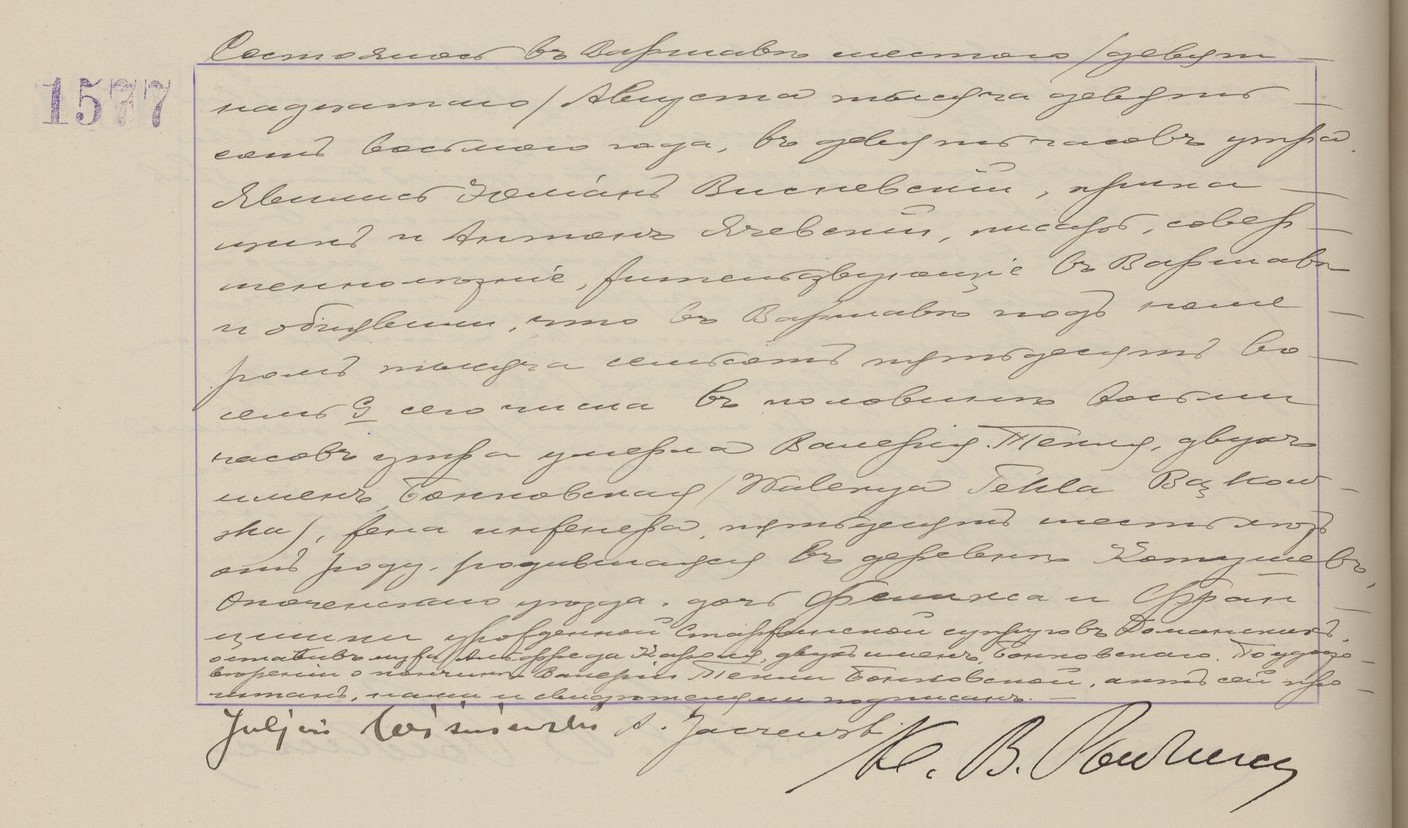 1577
Состоялось въ Варшавѣ шестого /девят
надцатаго/ Августа тысяча девять
сотъ восьмого года, въ девять часовъ утра.
Явились Юліанъ Висневскій, прика
щикъ и Антонъ Ячевскій, писарь, совер
шеннолѣтніе, жительствующіе въ Варшавѣ
и объявили, что въ Варшавѣ подъ номе
ромъ тысяча семьсотъ пятьдесятъ во
семь G сего числа въ половинѣ восьми
часовъ утра умерла Валерія Текля, двухъ
именъ, Бонковская /Walerya Tekla Bąkow-
ska/, жена инженера, пятьдесятъ шесть лѣтъ
отъ роду, родившаяся въ деревнѣ Котушевъ,
Опоченскаго уѣзда, дочь Феликса и Фран
цишки урожденной супруговъ Доманскихъ,
оставивъ мужа Альфреда Кароля, двухъ именъ, Бонковскаго. По удосто
вѣреніи о кончинѣ Валеріи Текли Бонковской, актъ сей про
читанъ, нами и свидѣтелями подписанъ.
Juljan Wiśniewski A. Jaczewski
К. В.